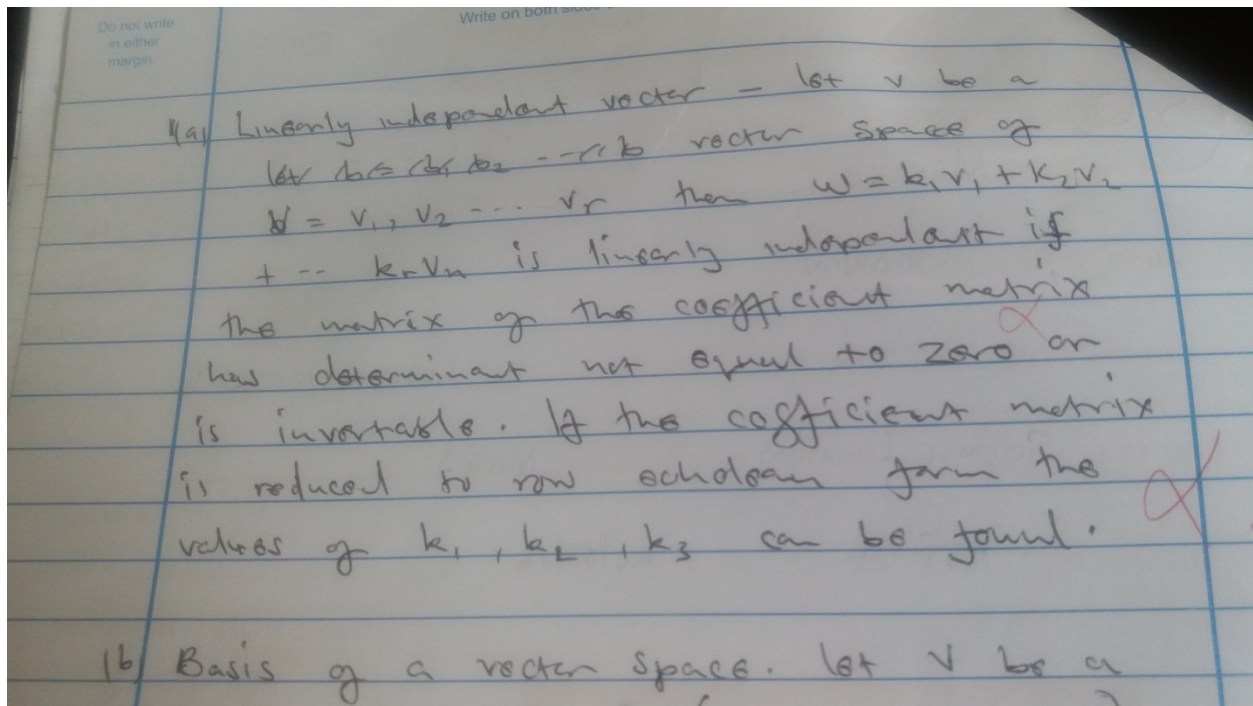 Do not write
in either
margin.
Write on both sides
1(a) Linearly independent vector - let v be a
vector space of
V = v₁, v₂ ... vᵣ then w = k₁v₁ + k₂v₂
+ -- kᵣvₙ is linearly independent if
the matrix of the coefficient metrix
has determinant not equal to zero or
is invertable. If the cofficient metrix
is reduced to row echolean form the
values of k₁, k₂, k₃ can be found.
1b) Basis of a vector space. let V be a